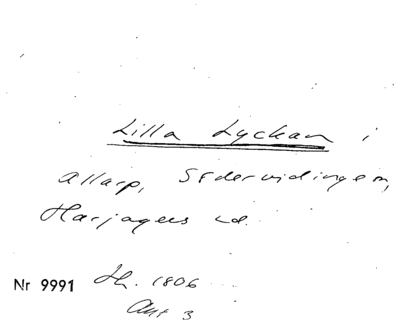 Lilla Lyckan i
Allarp, Södervidingem,
Harjagers hd.
Nr 9991 Jh. 1806
Akt 3